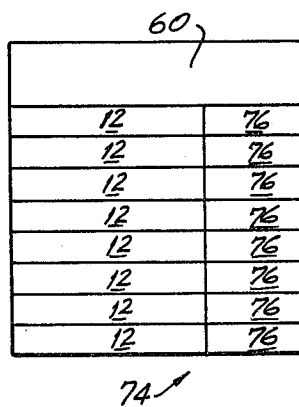 60
12 76
12 76
12 76
12 76
12 76
12 76
12 76
12 76
74